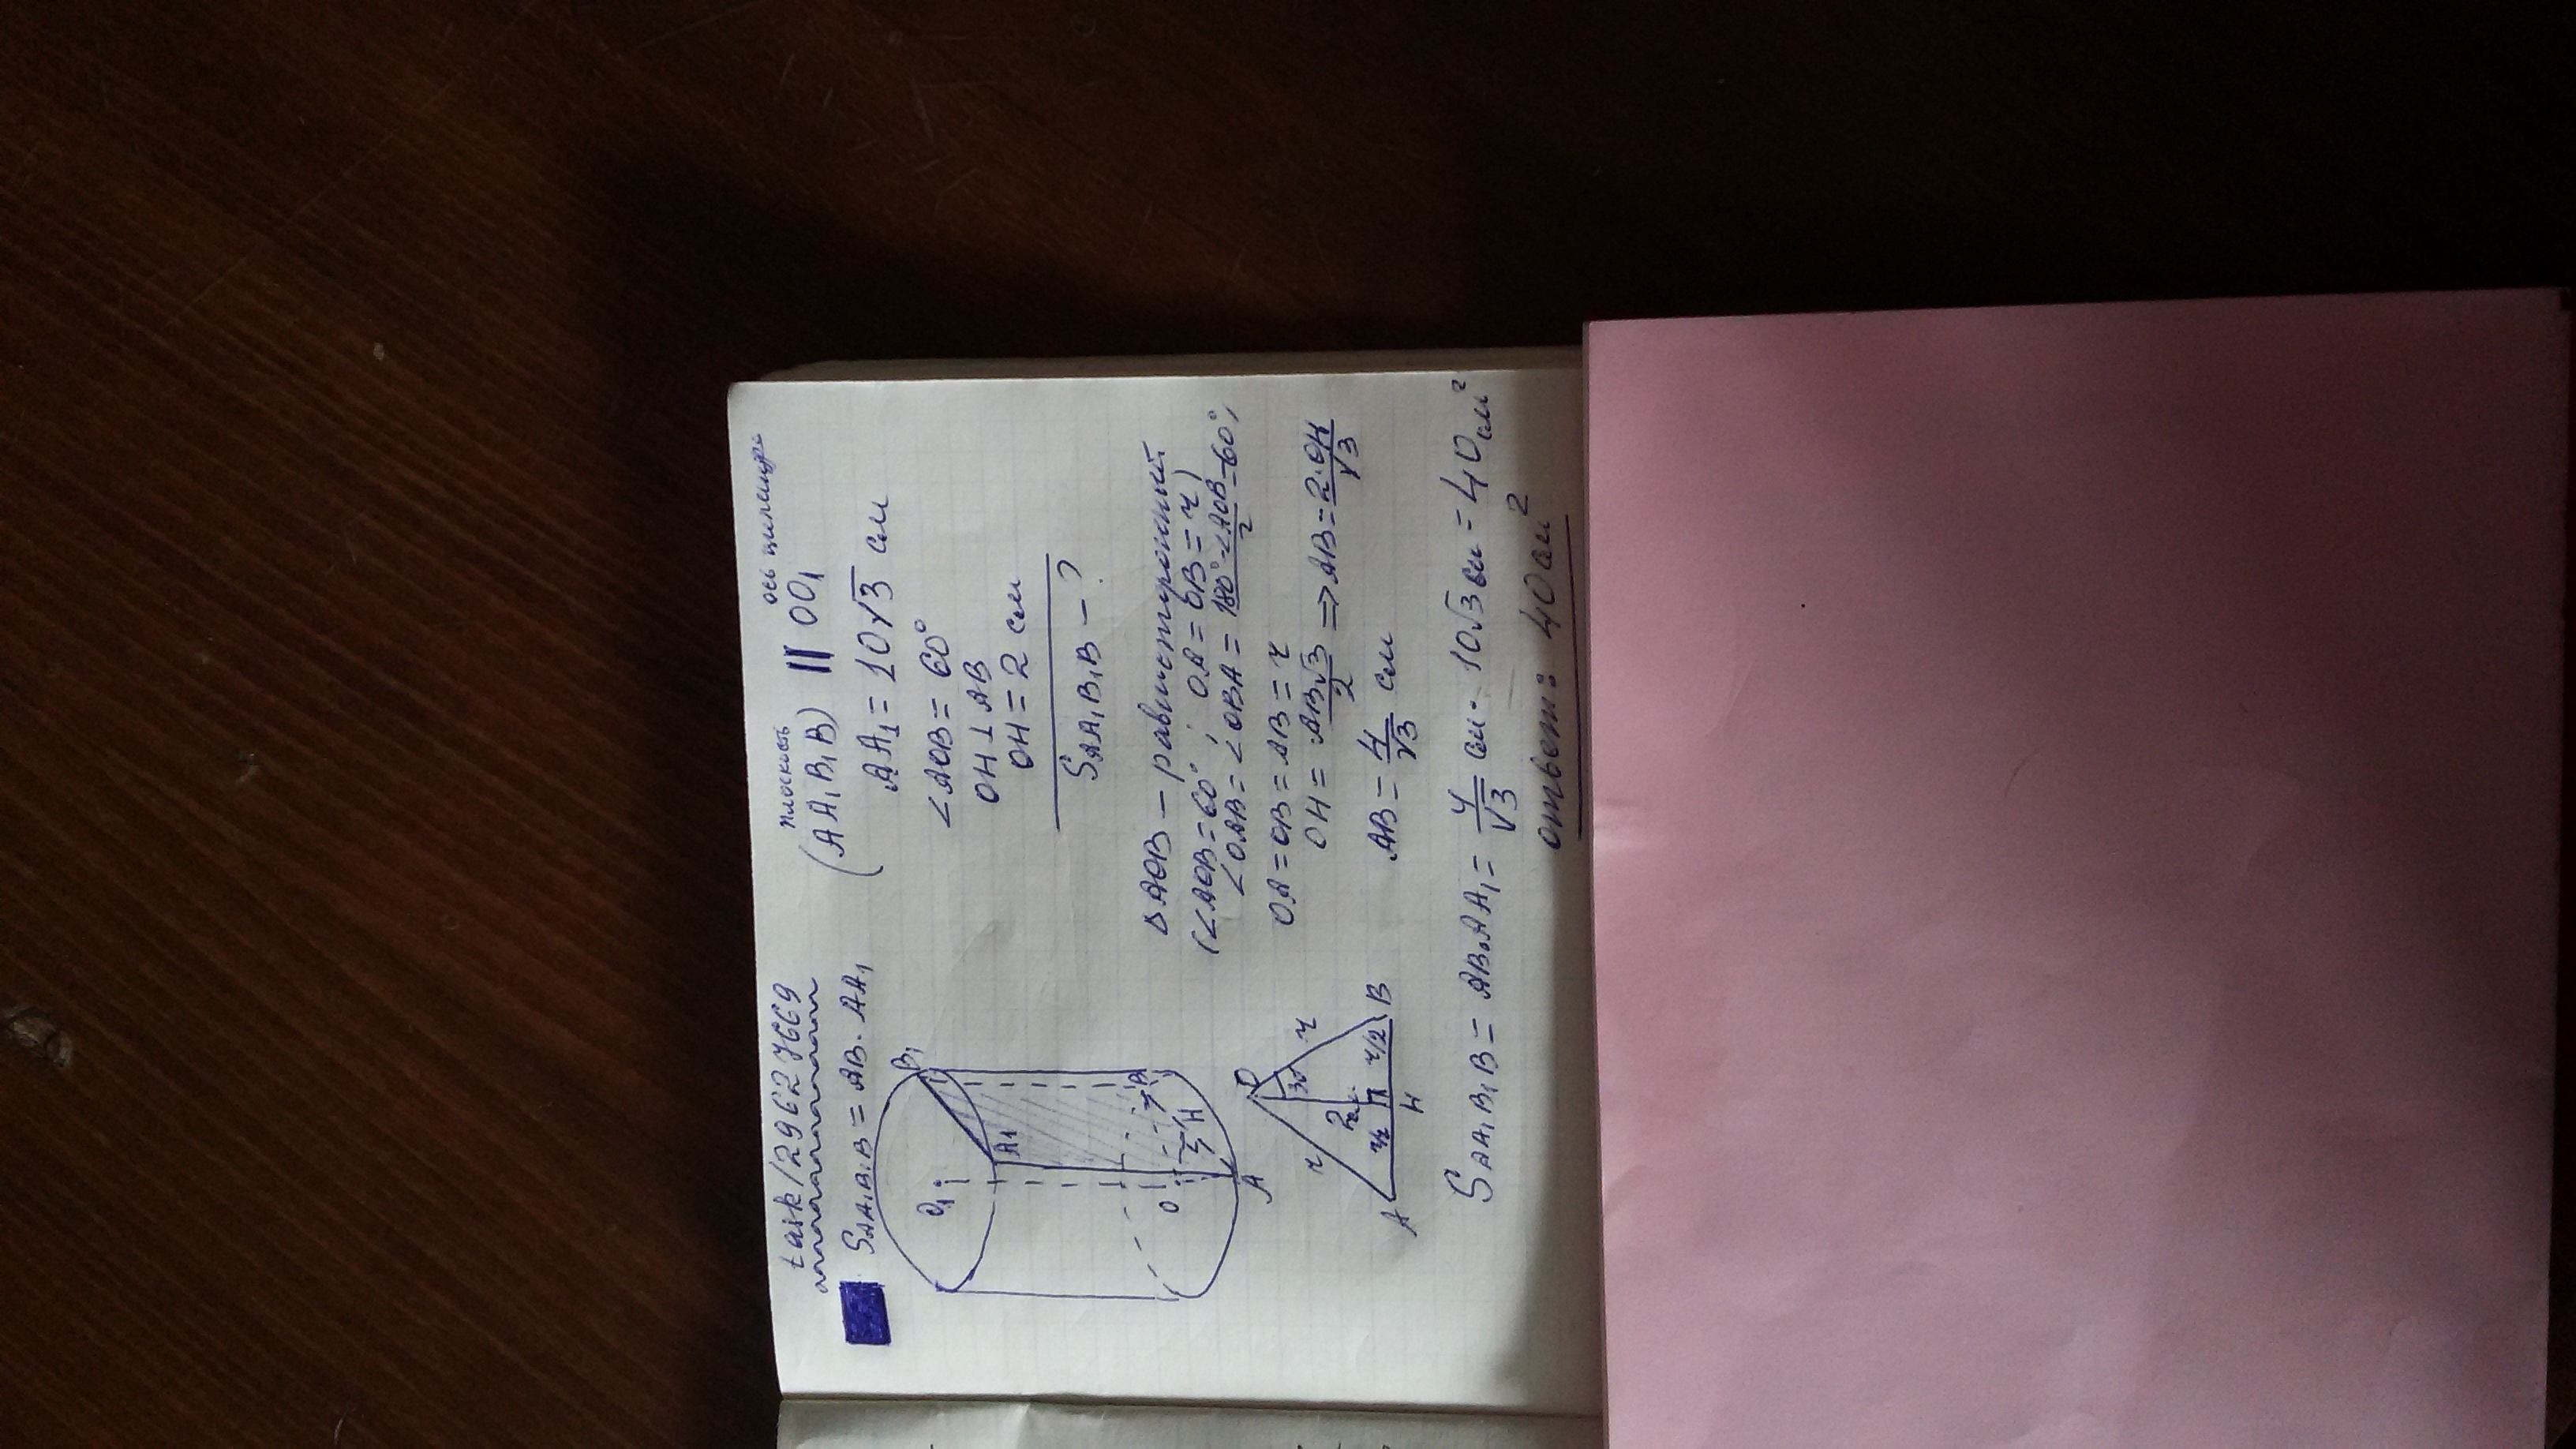 task/29627669
S AA₁B₁B = AB · AA₁
плоскость ось цилиндра
(AA₁B₁B) || OO₁
AA₁ = 10√3 см
∠AOB = 60°
OH ⊥ AB
OH = 2 см
S AA₁B₁B - ?
O₁
B₁
A₁
O
H
B
A
ΔAOB – равносторонний
(∠AOB = 60°; OA = OB = r)
∠OAB = ∠OBA = (180° - ∠AOB)/2 = 60°,
OA = OB = AB = r
OH = AB√3/2 => AB = 2·OH/√3
AB = 4/√3 см
O
r 30° r
2см
r/2 r/2
A H B
S AA₁B₁B = AB · AA₁ = 4/√3 см · 10√3 см = 40 см²
ответ: 40 см²